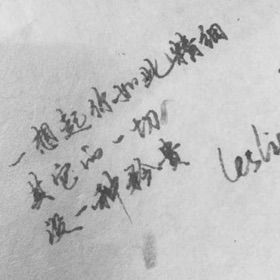 一想起你如此精细
其它的一切
没一种矜贵
Leslie